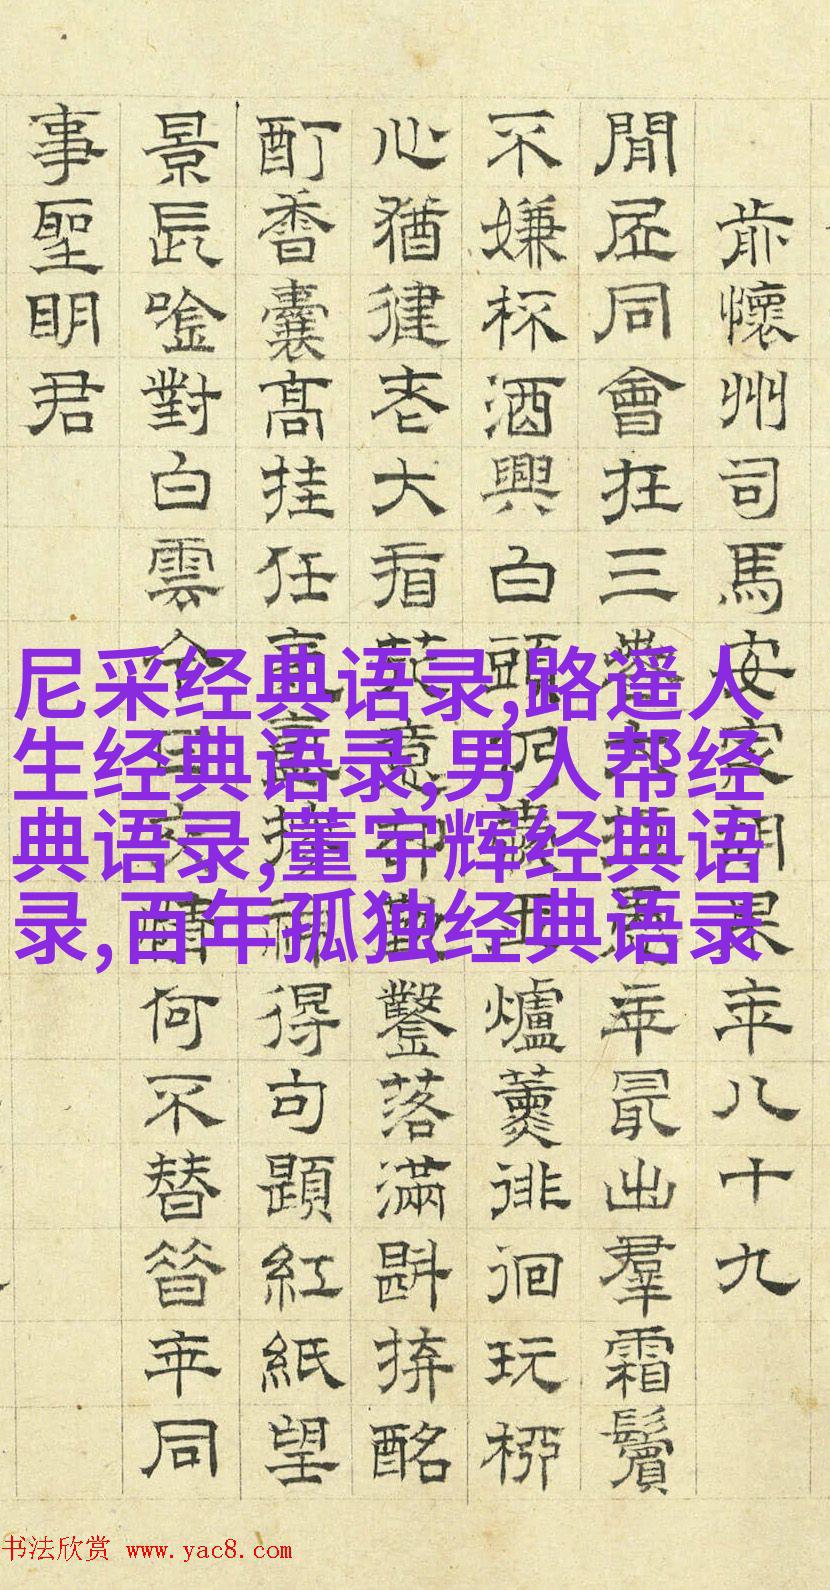 前懷州司馬安定胡杲年八十九
閒居同會在三
年最出羣霜鬢
不嫌杯酒興白頭仍
爐薰徘徊玩柳
心猶健老大看花意却
鑿落滿斟拚酩
酊香囊高挂任氤氳
得句題紅紙望
景長吟對白雲今
何不替昔年同
事聖明君
尼采经典语录,路遥人
生经典语录,男人帮经
典语录,董宇辉经典语
录,百年孤独经典语录
书法欣赏 www.yac8.com